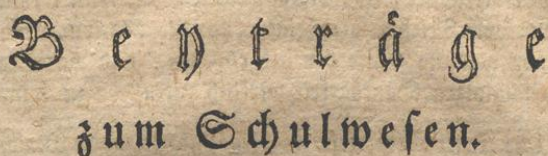 Beyträge
zum Schulweſen.